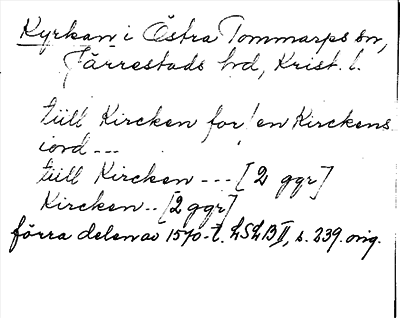 Kyrkan i Östra Tommarps sn,
Järrestads hd, Krist. l.
tüll Kircken for! en Kirckens
iord ---
tüll Kircken --- [2 ggr]
Kircken -- [2 ggr]
förra delen av 1570-t. LSLB II, s. 239. orig.